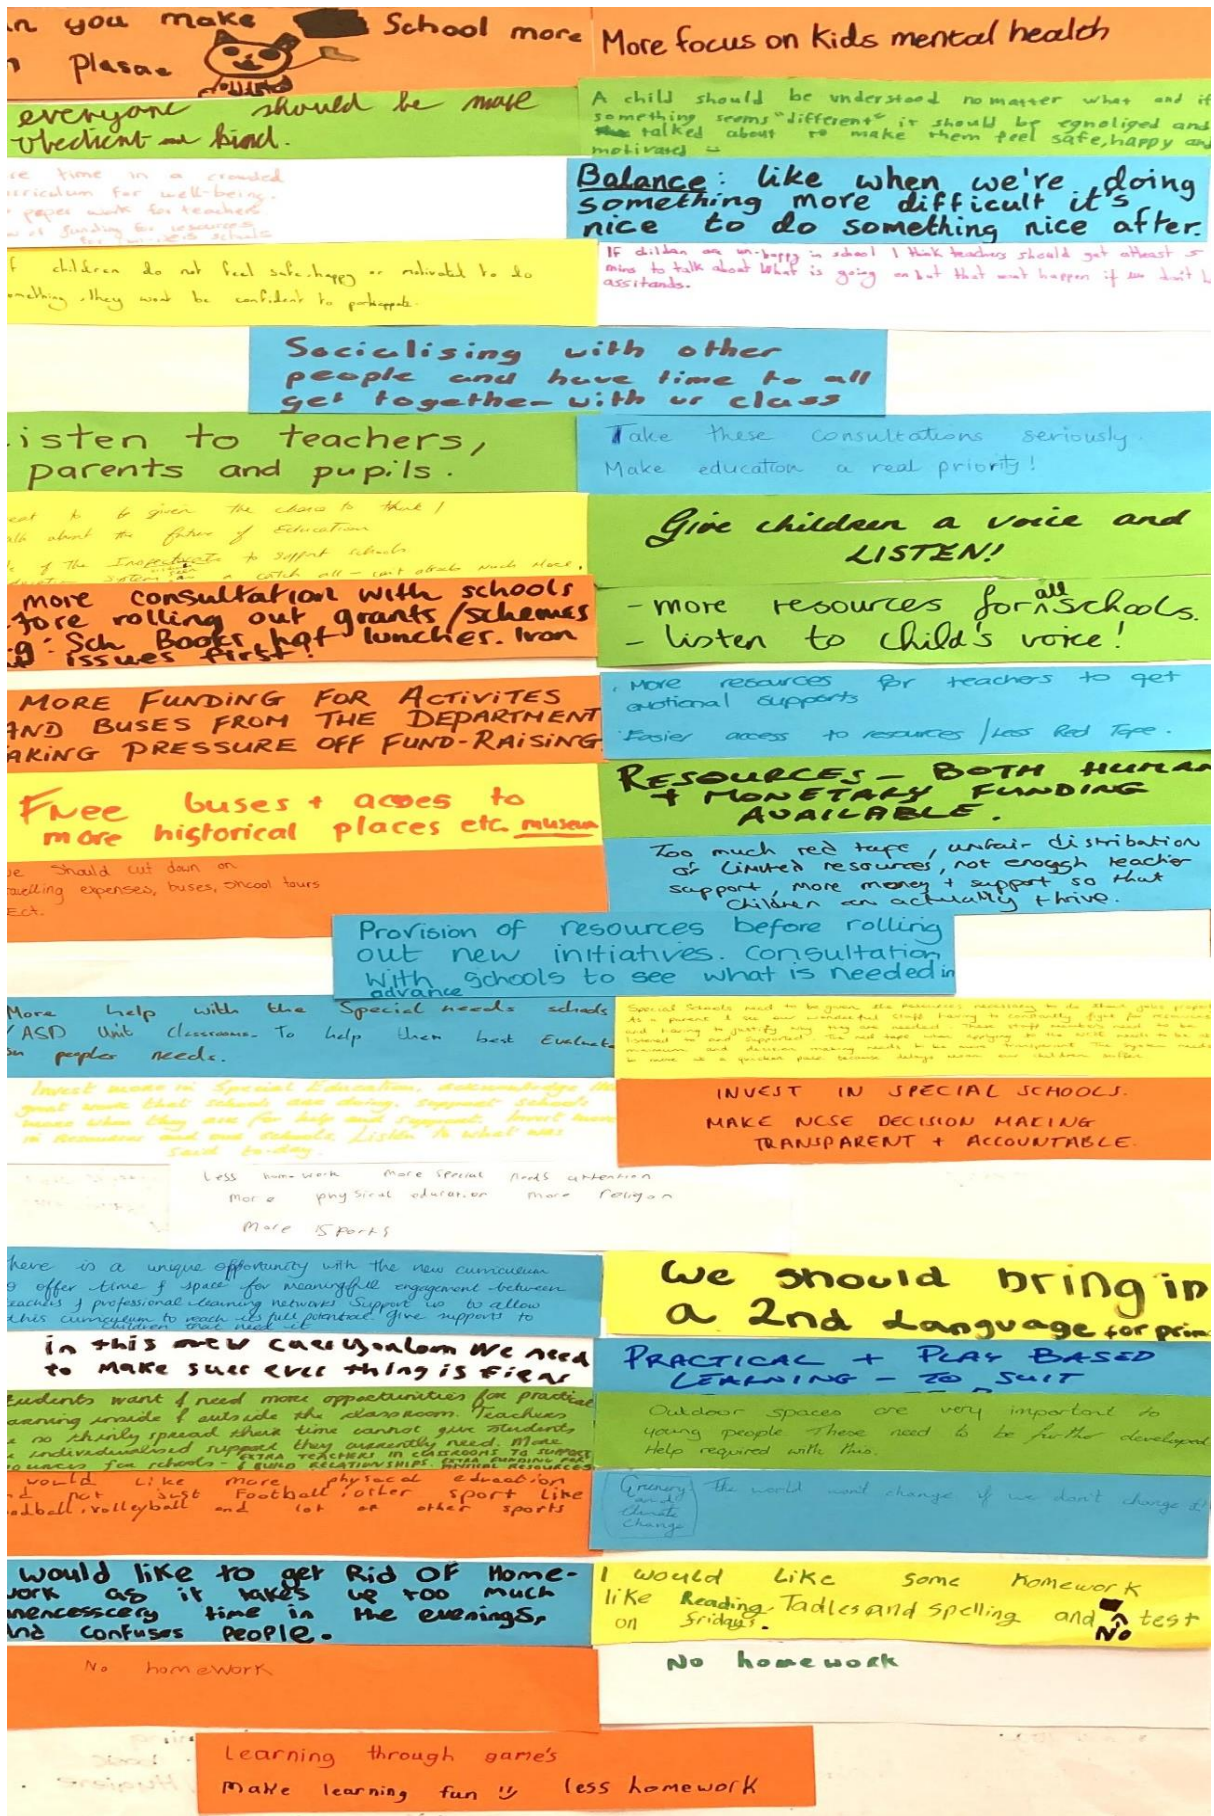 n you make School more
plasae
More focus on Kids mental health
everyone should be more
obedient and kind.
A child should be understood no matter what and if
something seems "different" it should be egnoliged and
talked about to make them feel safe, happy and
motivated
re time in a crowded
rriculum for well-being.
paper work for teachers
funding for resources
schools
Balance: like when we're doing
something more difficult it's
nice to do something nice after.
f children do not feel safe, happy or motivated to do
omething, they wont be confident to participate.
IF children are un-happy in school I think teachers should get atleast 5
mins to talk about What is going on but that wont happen if we don't h
assitands.
Socialising with other
people and have time to all
get together with ur class
isten to teachers,
parents and pupils.
Take these consultations seriously.
Make education a real priority!
to be given the chance to think /
alk about the future of Education
of the Inspectorate to support schools
system as a catch all - cant attach much more.
Give children a voice and
LISTEN!
more consultation with schools
fore rolling out grants/schemes
g: Sch Books, hot lunches. Iron
issues first!
- more resources for all schools.
- listen to child's voice!
MORE FUNDING FOR ACTIVITES
AND BUSES FROM THE DEPARTMENT
AKING PRESSURE OFF FUND-RAISING
. More resources for teachers to get
emotional supports
. Easier access to resources / Less Red Tape.
Free buses + acces to
more historical places etc. museum
RESOURCES - BOTH HUMAN
+ MONETARY FUNDING
AVAILABLE.
e should cut down on
avelling expenses, buses, shcool tours
Ect.
Too much red tape, unfair distribution
of limited resources, not enough teacher
support, more money + support so that
children can actually thrive.
Provision of resources before rolling
out new initiatives. Consultation
with schools to see what is needed in
advance
More help with the Special needs schools
/ASD Unit classrooms. To help them best Evaluate
peoples needs.
Special Schools need to be given the resources necessary to do their jobs proper
As a parent I see our wonderful staff having to constantly fight for resources
and having to justify why they are needed. These staff members need to be
listened to and supported. The red tape when applying to the NCSE needs to be at
minimum and decision making needs to be more transparent. The system needs
to move at a quicker pace because delays mean our children suffer.
Invest more in Special Education, acknowledge the
great work that schools are doing, support schools
more when they ask for help and support. Invest more
in resources and our schools. Listen to what was
said to-day.
INVEST IN SPECIAL SCHOOLS.
MAKE NCSE DECISION MAKING
TRANSPARENT + ACCOUNTABLE.
Less homework more special needs attention
more physical education more religon
more sports
here is a unique opportunity with the new curriculum
o offer time & space for meaningful engagement between
eachers & professional learning networks Support us to allow
this curriculum to reach its full potential. Give supports to
children that need it
We should bring in
a 2nd Language for prim
in this new We need
to make suer ever thing is
PRACTICAL + PLAY BASED
LEARNING - TO SUIT
tudents want & need more opportunities for practical
earning inside & outside the classroom. Teachers
so thinly spread their time cannot give students
individualised support they currently need. More
ources for schools - EXTRA TEACHERS IN CLASSROOMS TO SUPPORT
& BUILD RELATIONSHIPS. EXTRA FUNDING FOR
PHYSICAL RESOURCES
Outdoor spaces are very important to
young people. These need to be further developed.
Help required with this.
would like more physacal education
d not just Football, other sport like
adball, volleyball and lot of other sports
Greenery and climate change
The world wont change if we don't change it!
would like to get Rid OF Home-
work as it takes up too much
unencesscery time in the evenings,
and confuses people.
I would like some homework
like Reading, Tadles and spelling and No test
on fridays.
No homework
No homework
Learning through game's
Make learning fun less homework